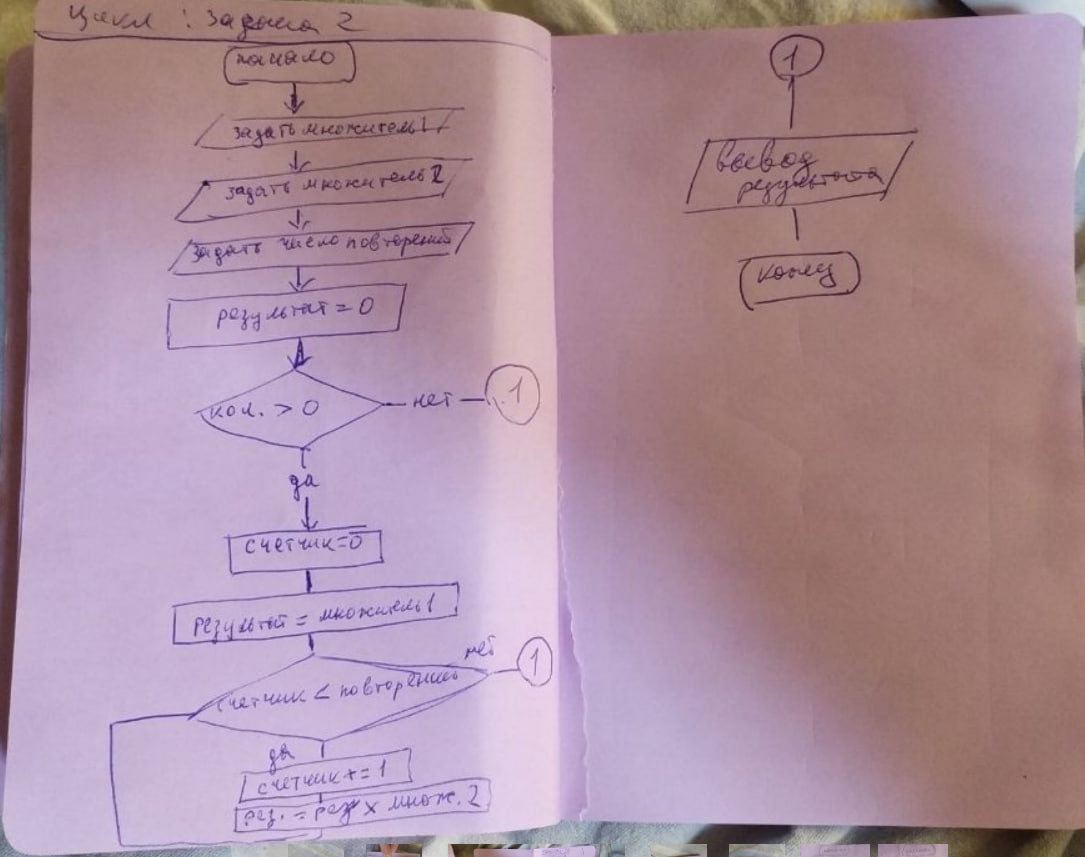 Цикл : Задача 2
начало
задать множитель 1
задать множитель 2
задать число повторений
результат = 0
кол. > 0
нет
1
да
счетчик = 0
результат = множитель 1
счетчик < повторений
нет
1
да
счетчик += 1
рез. = рез × множ. 2
1
вывод
результата
конец